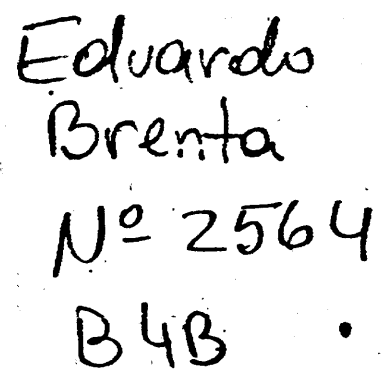 Eduardo
Brenta
Nº 2564
B4B